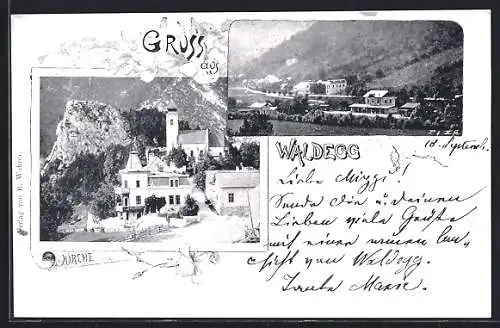 GRUSS
aus
WALDEGG
18. Septemb.
Liebe Mizzi!
Sende Dir u. deinen
Lieben viele Grüße
mit einer neuen An-
sicht von Waldegg.
Tante Marie.
KIRCHE
Verlag von R. Weber.